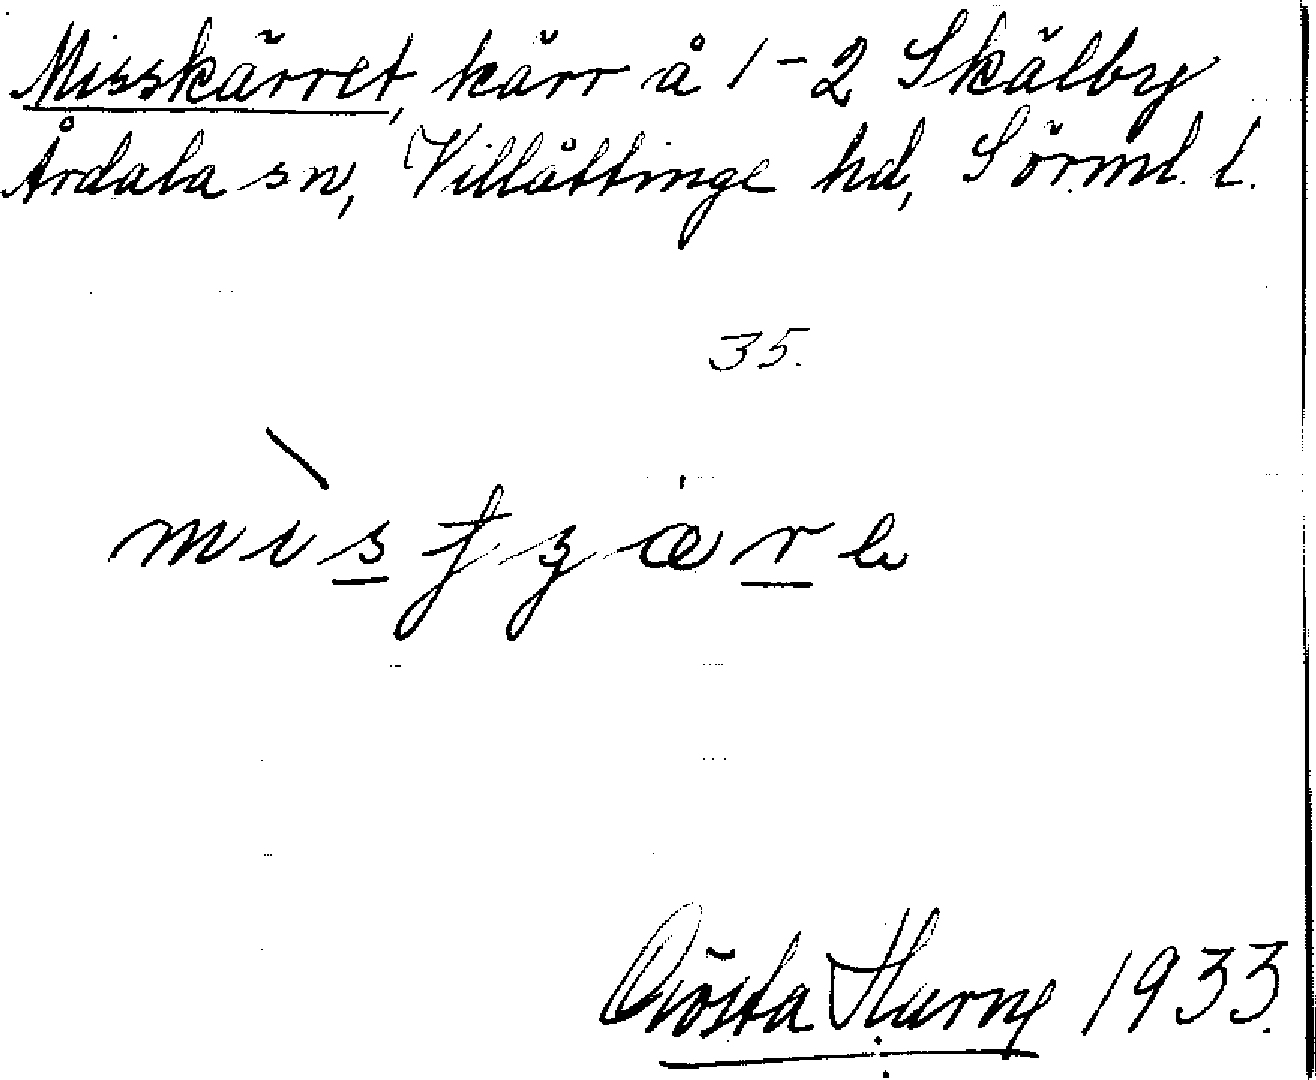 Misskärret, kärr å 1-2 Skälby
Årdala sn, Villåttinge hd, Sörml. l.
35.
Gösta 1933.